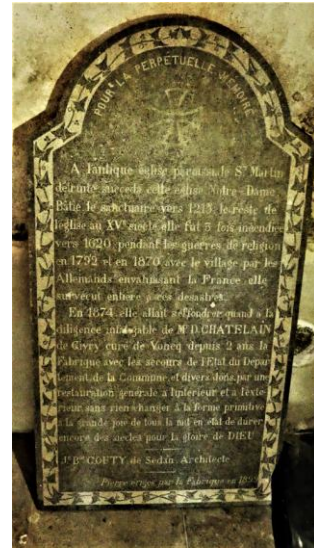 POUR LA PERPETUELLE MÉMOIRE
A l'antique église paroissiale St Martin
détruite succéda cette église Notre-Dame
Bâtie le sanctuaire vers 1215, le reste de
l'église au XVe siècle elle fut 3 fois incendiée
vers 1620 pendant les guerres de religion
en 1792 et en 1870 avec le village par les
Allemands envahissant la France elle
survécut entière à ces désastres.
En 1874 elle allait s'effondrer quand a la
diligence infatigable de Mr D. CHATELAIN
de Givry curé de Voncq depuis 2 ans la
Fabrique avec les secours de l'Etat du Dépar
tement de la Commune et divers dons, par une
restauration générale à l'intérieur et à l'exté-
rieur sans rien changer à la forme primitive
à la grande joie de tous la mit en état de durer
encore des siècles pour la gloire de DIEU
J. Bte COUTY de Sedan Architecte
Pierre érigée par la Fabrique en